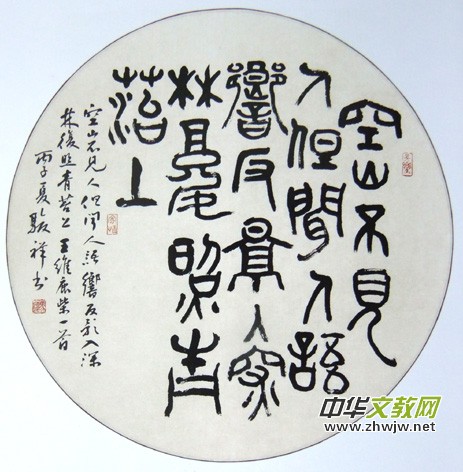 空山不見
人但聞人語
響反景入深
林復照青
苔上
空山不見人但聞人語響反影入深
林復照青苔上王維鹿柴一首
丙子夏駿祥书
中华文教网
www.zhwjw.net